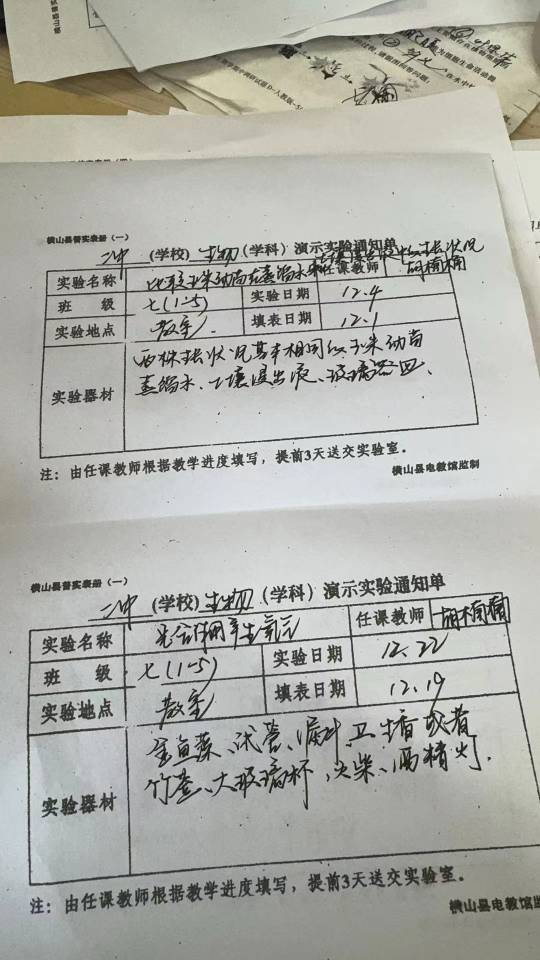 横山县普实表册（一）
二中（学校）生物（学科）演示实验通知单
实验名称 比较玉米幼苗在蒸馏水和土壤浸出液中的生长状况 任课教师 胡楠楠
班级 七（1-5） 实验日期 12.4
实验地点 教室. 填表日期 12.1
实验器材 两株生长状况基本相同的玉米幼苗
蒸馏水、土壤浸出液、玻璃器皿、
注：由任课教师根据教学进度填写，提前3天送交实验室。
横山县电教馆监制
横山县普实表册（一）
二中（学校）生物（学科）演示实验通知单
实验名称 光合作用产生氧气 任课教师 胡楠楠
班级 七（1-5） 实验日期 12、22
实验地点 教室 填表日期 12.19
实验器材 金鱼藻、试管、漏斗、卫生香或者
竹签、大玻璃杯、火柴、酒精灯.
注：由任课教师根据教学进度填写，提前3天送交实验室。
横山县电教馆监